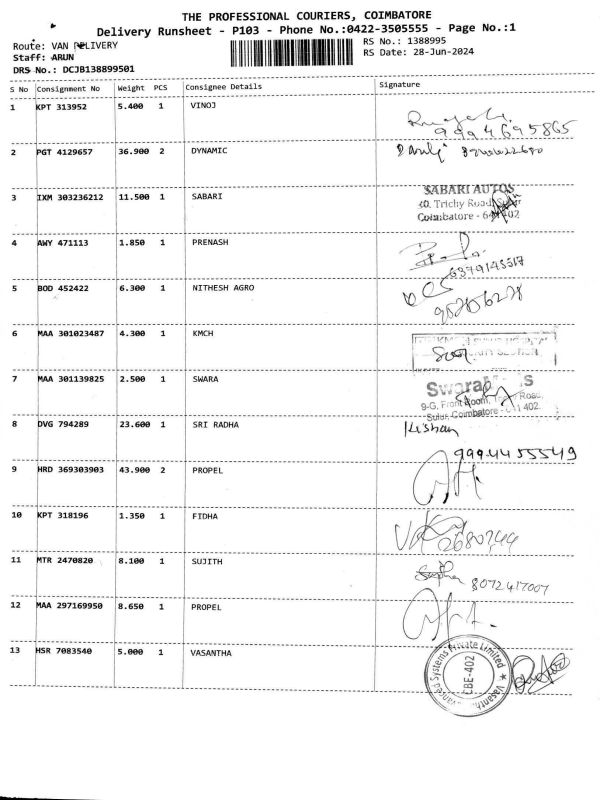 THE PROFESSIONAL COURIERS, COIMBATORE
Delivery Runsheet - P103 - Phone No.:0422-3505555 - Page No.:1
Route: VAN DELIVERY
RS No.: 1388995
Staff: ARUN
RS Date: 28-Jun-2024
DRS No.: DCJB138899501
S No Consignment No Weight PCS Consignee Details Signature
1 KPT 313952 5.400 1 VINOJ
9994695865
2 PGT 4129657 36.900 2 DYNAMIC
3 IXM 303236212 11.500 1 SABARI
SABARI AUTOS
Trichy Road, Sulur
Coimbatore - 641 402
4 AWY 471113 1.850 1 PRENASH
6379145517
5 BOD 452422 6.300 1 NITHESH AGRO
6 MAA 301023487 4.300 1 KMCH
7 MAA 301139825 2.500 1 SWARA
9-G, Front Room, Road,
Sulur, Coimbatore - 641 402.
8 DVG 794289 23.600 1 SRI RADHA
Kishan
9994455549
9 HRD 369303903 43.900 2 PROPEL
10 KPT 318196 1.350 1 FIDHA
11 MTR 2470820 8.100 1 SUJITH
8072417007
12 MAA 297169950 8.650 1 PROPEL
13 HSR 7083540 5.000 1 VASANTHA
Vasantha Advanced Systems Private Limited
CBE-402